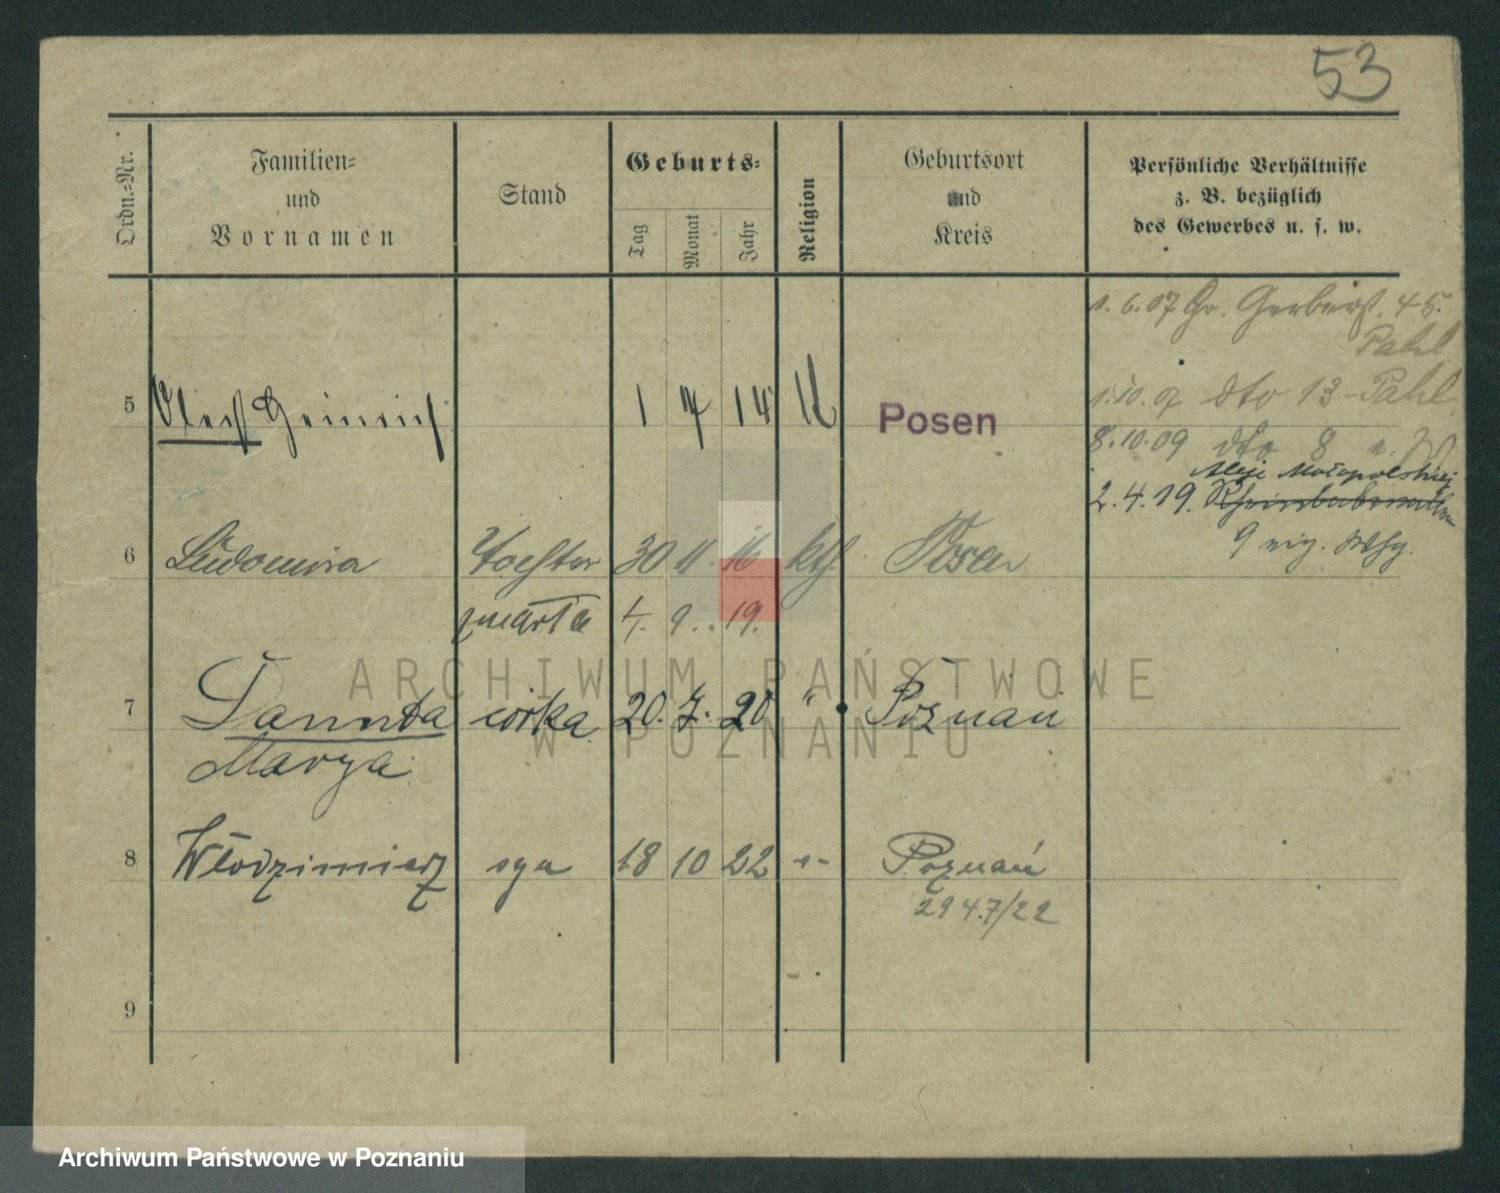 53
Ordn.=Nr.
Familien=
und
Vornamen
Stand
Geburts=
Tag
Monat
Jahr
Religion
Geburtsort
und
Kreis
Persönliche Verhältnisse
z. B. bezüglich
des Gewerbes u. s. w.
1.6.07 Gr. Gerberst. 45.
Pahl
5 Heinrich 1 7 14 Posen
1.10.07 dto 13 - Pahl
8.10.09 dto 8
Aleje Małopolskiej
2.4.19.
9 eig. Whg.
6 Ludomira Tochter 30 11. 16 kth. Posen
zmarła 4. 9. 19.
7 Danuta córka 20. 7. 20 " Poznań
Marya
8 Włodzimierz syn 18 10 22 -"- Poznań
2947/22
9
ARCHIWUM PAŃSTWOWE
W POZNANIU
Archiwum Państwowe w Poznaniu